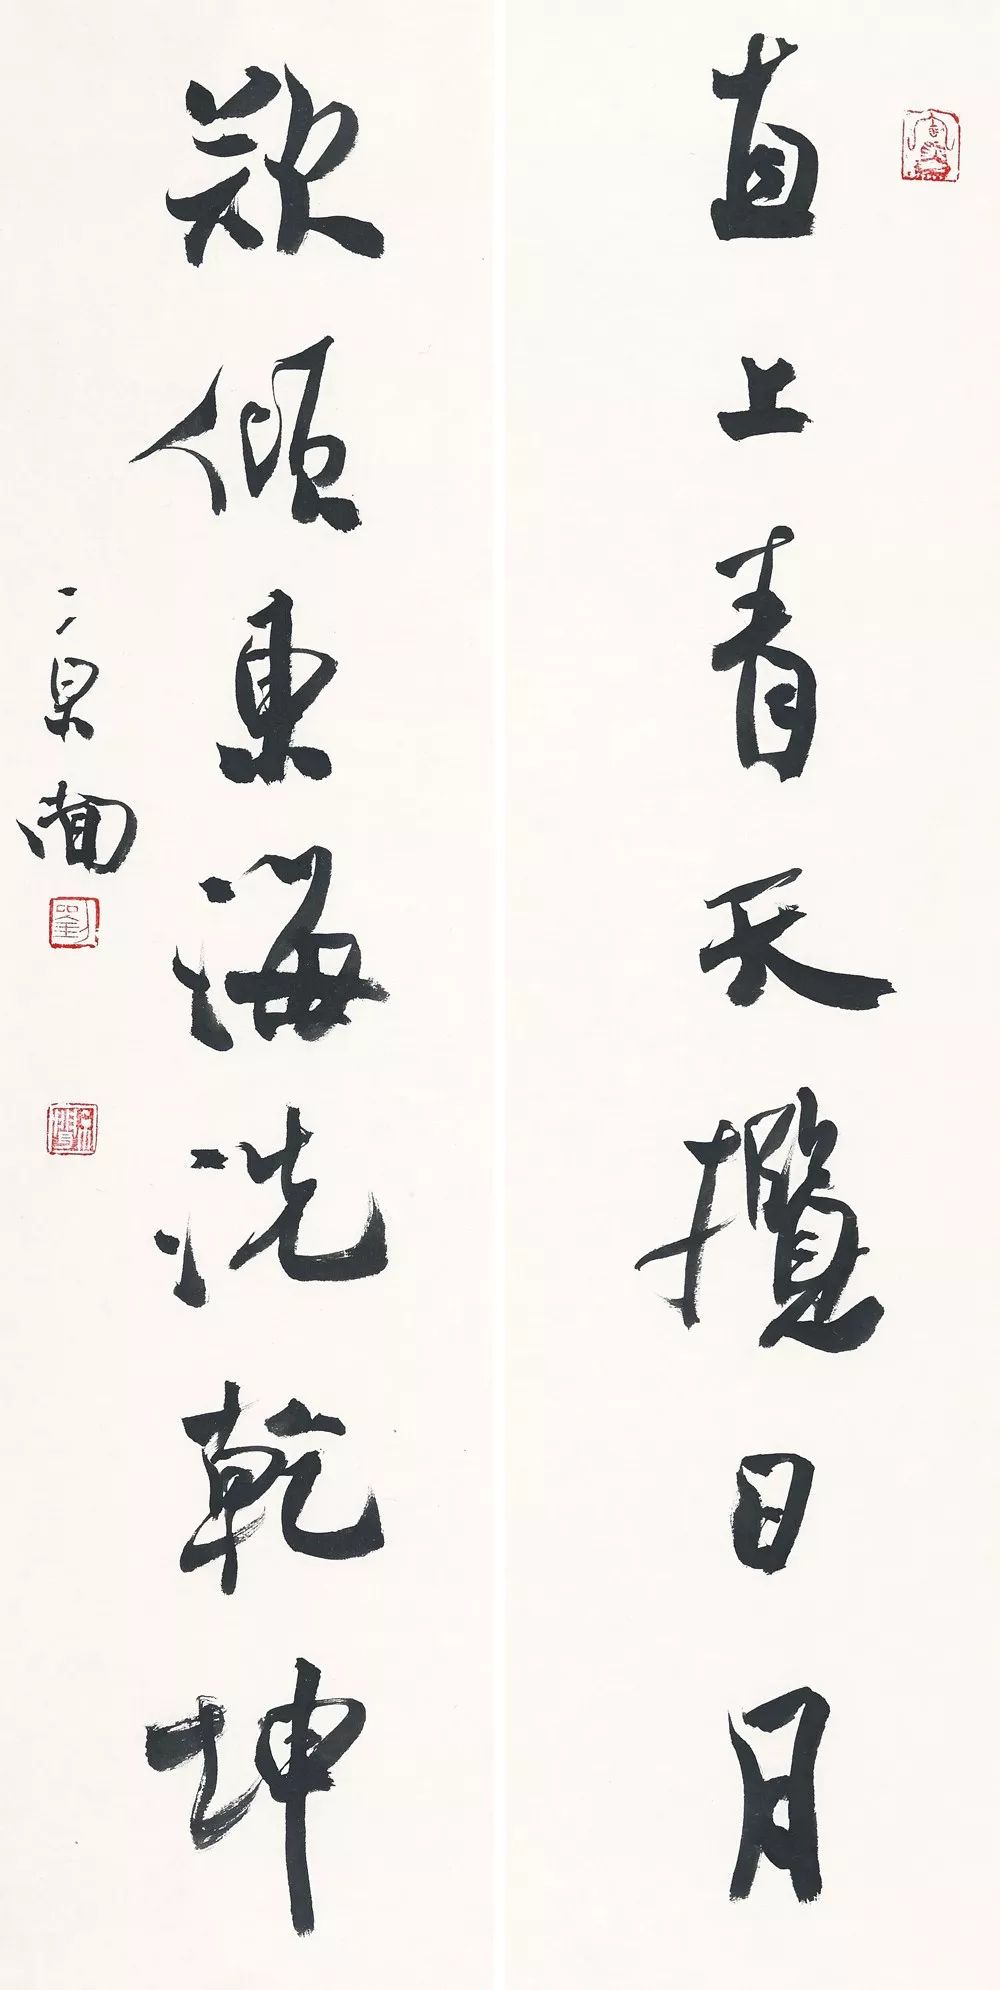 直上青天攬日月
欲傾東海洗乾坤
劉